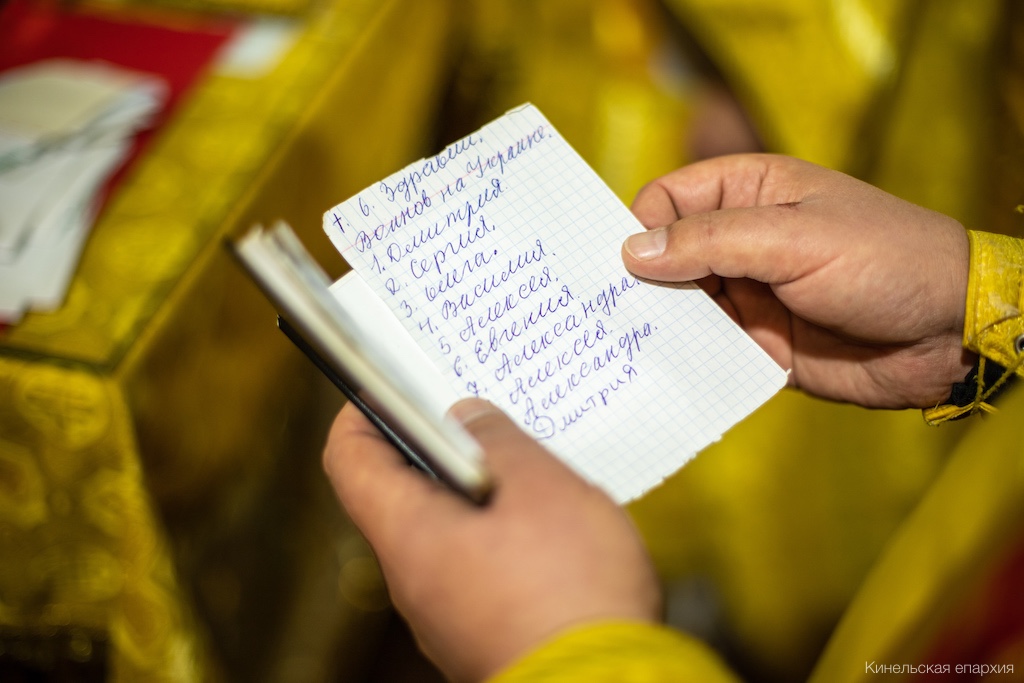 + б. Здравии.
Воинов на Украине.
1. Дмитрия
2. Сергия.
3. Олега.
4. Василия.
5 Алексея.
6. Евгения
7. Александра.
Алексея.
Александра.
Дмитрия
Кинельская епархия